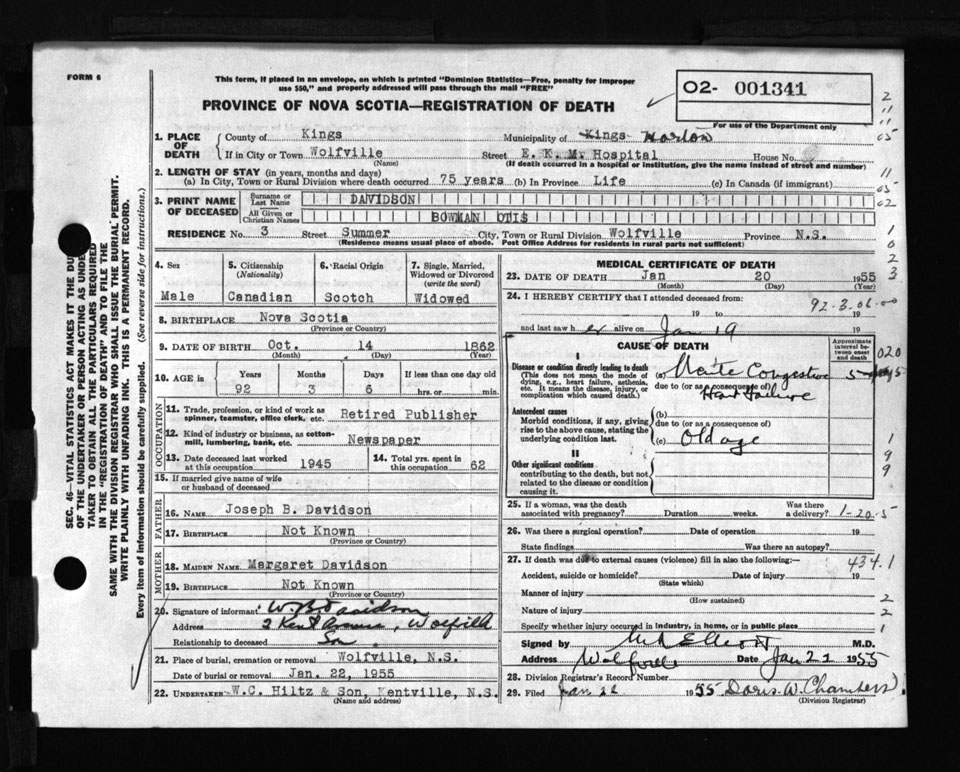 FORM 6
This form, if placed in an envelope, on which is printed "Dominion Statistics—Free, penalty for improper
use $50," and properly addressed will pass through the mail "FREE"
O2- 001341
For use of the Department only
PROVINCE OF NOVA SCOTIA—REGISTRATION OF DEATH
1. PLACE OF DEATH { County of Kings Municipality of Kings Horton
If in City or Town Wolfville (Name) Street E. K. M. Hospital House No.
(If death occurred in a hospital or institution, give the name instead of street and number)
2. LENGTH OF STAY (in years, months and days)
(a) In City, Town or Rural Division where death occurred 75 years (b) In Province Life (c) In Canada (if immigrant)
3. PRINT NAME OF DECEASED { Surname or Last Name DAVIDSON
All Given or Christian Names BOWMAN OTIS
RESIDENCE No. 3 Street Summer City, Town or Rural Division Wolfville Province N.S.
(Residence means usual place of abode. Post Office Address for residents in rural parts not sufficient)
4. Sex Male
5. Citizenship (Nationality) Canadian
6. Racial Origin Scotch
7. Single, Married, Widowed or Divorced (write the word) Widowed
8. BIRTHPLACE Nova Scotia
(Province or Country)
9. DATE OF BIRTH Oct. 14 1862
(Month) (Day) (Year)
10. AGE in Years Months Days If less than one day old
92 3 6 hrs. or min.
OCCUPATION
11. Trade, profession, or kind of work as spinner, teamster, office clerk, etc. Retired Publisher
12. Kind of industry or business, as cotton-mill, lumbering, bank, etc. Newspaper
13. Date deceased last worked at this occupation 1945
14. Total yrs. spent in this occupation 62
15. If married give name of wife or husband of deceased
FATHER
16. NAME Joseph B. Davidson
17. BIRTHPLACE Not Known
(Province or Country)
MOTHER
18. MAIDEN NAME Margaret Davidson
19. BIRTHPLACE Not Known
(Province or Country)
20. Signature of informant W. B. Davidson
Address 2 Kent Avenue, Wolfville
Relationship to deceased Son
21. Place of burial, cremation or removal Wolfville, N.S.
Date of burial or removal Jan. 22, 1955
22. UNDERTAKER W.C. Hiltz & Son, Kentville, N.S.
(Name and address)
MEDICAL CERTIFICATE OF DEATH
23. DATE OF DEATH Jan 20 1955
(Month) (Day) (Year)
24. I HEREBY CERTIFY that I attended deceased from:
92-3-06-00
19 to 19
and last saw h alive on Jan 19 19
CAUSE OF DEATH
Approximate interval between onset and death
I
Disease or condition directly leading to death
(This does not mean the mode of dying, e.g., heart failure, asthenia, etc. It means the disease, injury, or complication which caused death.)
(a) Congestive
due to (or as a consequence of)
Heart Failure
5 days
Antecedent causes
Morbid conditions, if any, giving rise to the above cause, stating the underlying condition last.
(b)
due to (or as a consequence of)
(c) Old age
II
Other significant conditions
contributing to the death, but not related to the disease or condition causing it.
25. If a woman, was the death associated with pregnancy? Duration weeks. Was there a delivery?
1-20-5
26. Was there a surgical operation? Date of operation 19
State findings Was there an autopsy?
27. If death was due to external causes (violence) fill in also the following:—
434.1
Accident, suicide or homicide? Date of injury 19
(State which)
Manner of injury
(How sustained)
Nature of injury
Specify whether injury occurred in industry, in home, or in public place
Signed by Elliott M.D.
Address Wolfville Date Jan 21 1955
28. Division Registrar's Record Number
29. Filed Jan 22 1955 Doris W. Chambers
(Division Registrar)
SEC. 46—VITAL STATISTICS ACT MAKES IT THE DU
OF THE UNDERTAKER OR PERSON ACTING AS UNDER
TAKER TO OBTAIN ALL THE PARTICULARS REQUIRED
IN THE "REGISTRATION OF DEATH" AND TO FILE THE
SAME WITH THE DIVISION REGISTRAR WHO SHALL ISSUE THE BURIAL PERMIT.
WRITE PLAINLY WITH UNFADING INK. THIS IS A PERMANENT RECORD.
Every item of information should be carefully supplied. (See reverse side for instructions.)
2
11
11
05
11
05
02
1
0
2
3
020
1
9
9
2
2
1